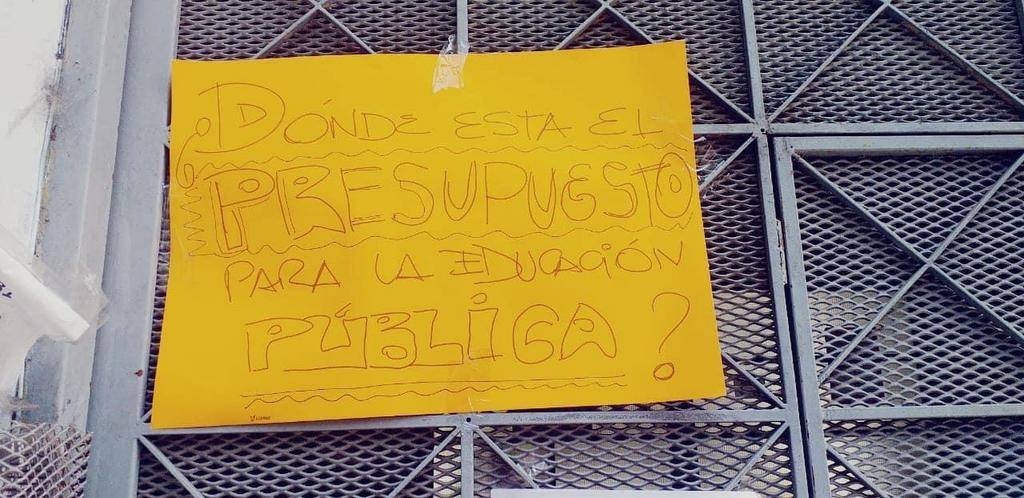 ¿DÓNDE ESTA EL
PRESUPUESTO
PARA LA EDUCACIÓN
PÚBLICA?